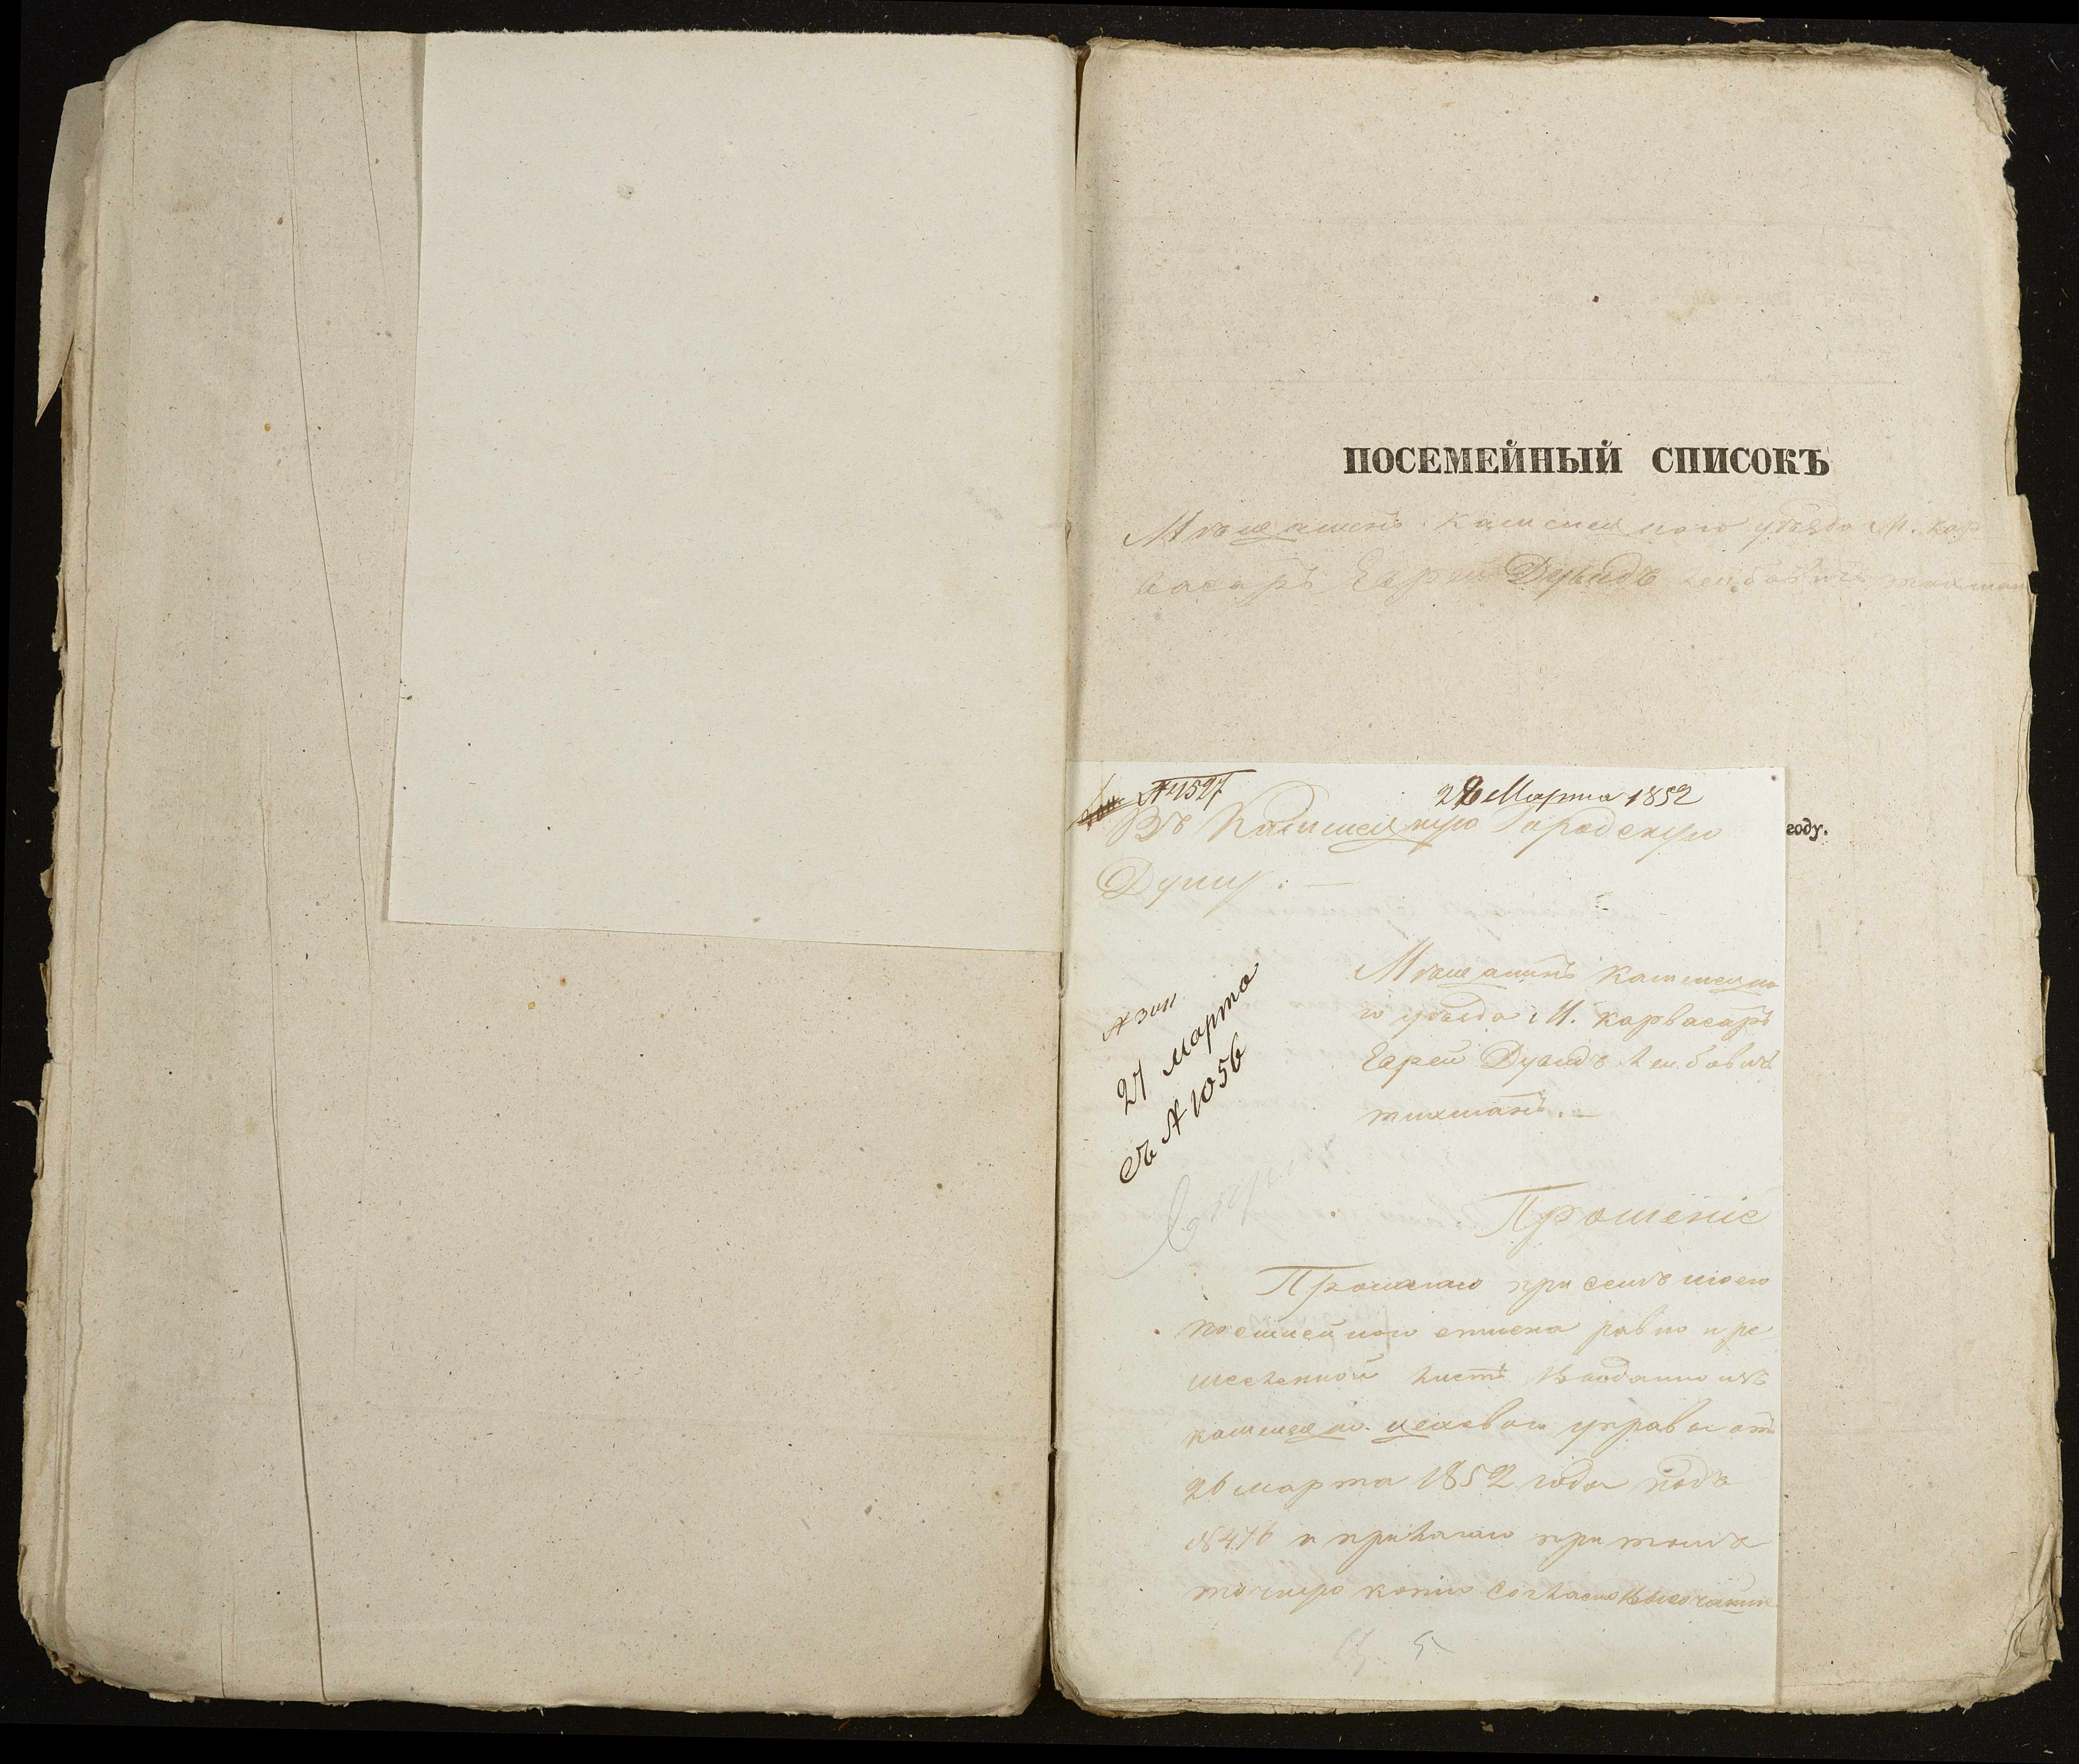 ПОСЕМЕЙНЫЙ СПИСОКЪ
Мѣщанинъ Каменецкого уѣзда М. кар
васаръ Еврей Дувидъ Лейбовичъ тихманъ
году.
№ 1527
28 Марта 1852
Въ Каменецкую Городскую
Думу. —
Мѣщанинъ Каменецко
го уѣзда М. карвасаръ
Еврей Дувидъ Лейбовичъ
тихманъ. —
27 марта
№ 1056
Прошеніе
при семъ моего
посемейного списка равно и ре
месленной листъ Выданно изъ
каменецко. цеховаго управа отъ
26 марта 1852 года подъ
№ 416 и прилагаю при томъ
точную копію Согласно Высочайше